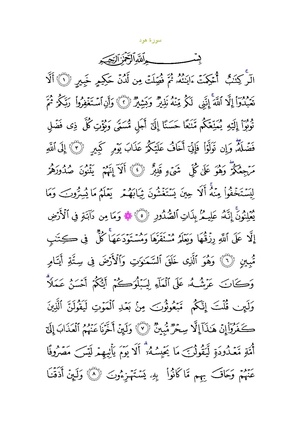 سورة هود
بِسْمِ اللَّهِ الرَّحْمَٰنِ الرَّحِيمِ
الٓر ۚ كِتَابٌ أُحْكِمَتْ آيَاتُهُ ثُمَّ فُصِّلَتْ مِن لَّدُنْ حَكِيمٍ خَبِيرٍ ﴿١﴾ أَلَّا
تَعْبُدُوا إِلَّا اللَّهَ ۚ إِنَّنِي لَكُم مِّنْهُ نَذِيرٌ وَبَشِيرٌ ﴿٢﴾ وَأَنِ اسْتَغْفِرُوا رَبَّكُمْ ثُمَّ
تُوبُوا إِلَيْهِ يُمَتِّعْكُم مَّتَاعًا حَسَنًا إِلَىٰ أَجَلٍ مُّسَمًّى وَيُؤْتِ كُلَّ ذِي فَضْلٍ
فَضْلَهُ ۖ وَإِن تَوَلَّوْا فَإِنِّي أَخَافُ عَلَيْكُمْ عَذَابَ يَوْمٍ كَبِيرٍ ﴿٣﴾ إِلَى اللَّهِ
مَرْجِعُكُمْ ۖ وَهُوَ عَلَىٰ كُلِّ شَيْءٍ قَدِيرٌ ﴿٤﴾ أَلَا إِنَّهُمْ يَثْنُونَ صُدُورَهُمْ
لِيَسْتَخْفُوا مِنْهُ ۚ أَلَا حِينَ يَسْتَغْشُونَ ثِيَابَهُمْ يَعْلَمُ مَا يُسِرُّونَ وَمَا
يُعْلِنُونَ ۚ إِنَّهُ عَلِيمٌ بِذَاتِ الصُّدُورِ ﴿٥﴾ ۞ وَمَا مِن دَابَّةٍ فِي الْأَرْضِ
إِلَّا عَلَى اللَّهِ رِزْقُهَا وَيَعْلَمُ مُسْتَقَرَّهَا وَمُسْتَوْدَعَهَا ۚ كُلٌّ فِي كِتَابٍ
مُّبِينٍ ﴿٦﴾ وَهُوَ الَّذِي خَلَقَ السَّمَاوَاتِ وَالْأَرْضَ فِي سِتَّةِ أَيَّامٍ
وَكَانَ عَرْشُهُ عَلَى الْمَاءِ لِيَبْلُوَكُمْ أَيُّكُمْ أَحْسَنُ عَمَلًا ۗ
وَلَئِن قُلْتَ إِنَّكُم مَّبْعُوثُونَ مِن بَعْدِ الْمَوْتِ لَيَقُولَنَّ الَّذِينَ
كَفَرُوا إِنْ هَٰذَا إِلَّا سِحْرٌ مُّبِينٌ ﴿٧﴾ وَلَئِنْ أَخَّرْنَا عَنْهُمُ الْعَذَابَ إِلَىٰ
أُمَّةٍ مَّعْدُودَةٍ لَّيَقُولُنَّ مَا يَحْبِسُهُ ۗ أَلَا يَوْمَ يَأْتِيهِمْ لَيْسَ مَصْرُوفًا
عَنْهُمْ وَحَاقَ بِهِم مَّا كَانُوا بِهِ يَسْتَهْزِئُونَ ﴿٨﴾ وَلَئِنْ أَذَقْنَا